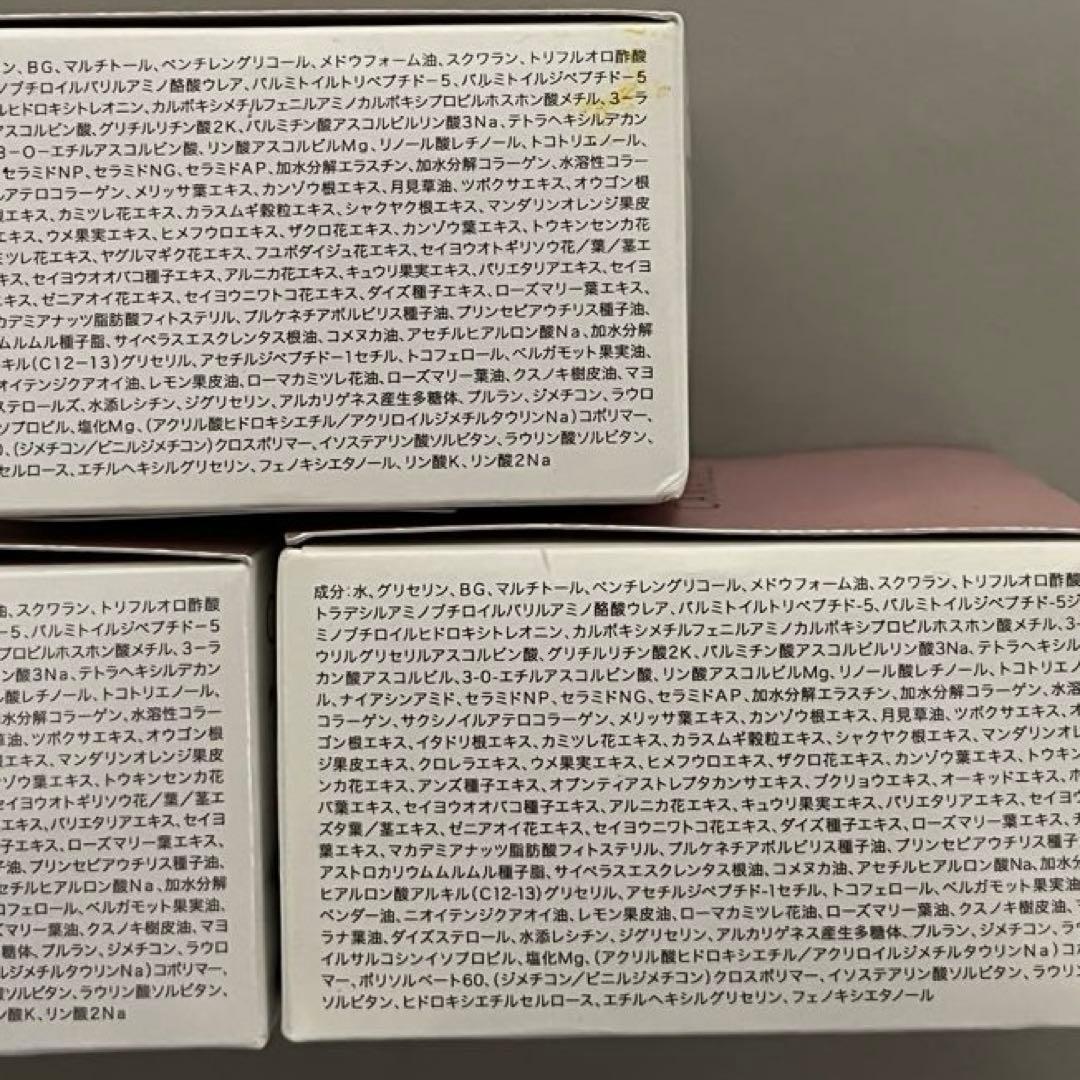 ン、BG、マルチトール、ペンチレングリコール、メドウフォーム油、スクワラン、トリフルオロ酢酸
ノブチロイルバリルアミノ酪酸ウレア、パルミトイルトリペプチド−5、パルミトイルジペプチド−5
ルヒドロキシトレオニン、カルボキシメチルフェニルアミノカルボキシプロピルホスホン酸メチル、3−ラ
アスコルビン酸、グリチルリチン酸2K、パルミチン酸アスコルビルリン酸3Na、テトラヘキシルデカン
3−O−エチルアスコルビン酸、リン酸アスコルビルMg、リノール酸レチノール、トコトリエノール、
セラミドNP、セラミドNG、セラミドAP、加水分解エラスチン、加水分解コラーゲン、水溶性コラー
ルアテロコラーゲン、メリッサ葉エキス、カンゾウ根エキス、月見草油、ツボクサエキス、オウゴン根
根エキス、カミツレ花エキス、カラスムギ穀粒エキス、シャクヤク根エキス、マンダリンオレンジ果皮
エキス、ウメ果実エキス、ヒメフウロエキス、ザクロ花エキス、カンゾウ葉エキス、トウキンセンカ花
ミツレ花エキス、ヤグルマギク花エキス、フユボダイジュ花エキス、セイヨウオトギリソウ花／葉／茎エ
キス、セイヨウオオバコ種子エキス、アルニカ花エキス、キュウリ果実エキス、パリエタリアエキス、セイヨ
キス、ゼニアオイ花エキス、セイヨウニワトコ花エキス、ダイズ種子エキス、ローズマリー葉エキス、
カデミアナッツ脂肪酸フィトステリル、プルケネチアボルビリス種子油、プリンセピアウチリス種子油、
ムルムル種子脂、サイペラスエスクレンタス根油、コメヌカ油、アセチルヒアルロン酸Na、加水分解
キル(C12−13)グリセリル、アセチルジペプチド−1セチル、トコフェロール、ベルガモット果実油、
オイテンジクアオイ油、レモン果皮油、ローマカミツレ花油、ローズマリー葉油、クスノキ樹皮油、マヨ
ステロールズ、水添レシチン、ジグリセリン、アルカリゲネス産生多糖体、プルラン、ジメチコン、ラウロ
ソプロピル、塩化Mg、(アクリル酸ヒドロキシエチル／アクリロイルジメチルタウリンNa)コポリマー、
0、(ジメチコン／ビニルジメチコン)クロスポリマー、イソステアリン酸ソルビタン、ラウリン酸ソルビタン、
セルロース、エチルヘキシルグリセリン、フェノキシエタノール、リン酸K、リン酸2Na
油、スクワラン、トリフルオロ酢酸
−5、パルミトイルジペプチド−5
プロピルホスホン酸メチル、3−ラ
ン酸3Na、テトラヘキシルデカン
酸レチノール、トコトリエノール、
水分解コラーゲン、水溶性コラー
草油、ツボクサエキス、オウゴン根
エキス、マンダリンオレンジ果皮
ゾウ葉エキス、トウキンセンカ花
セイヨウオトギリソウ花／葉／茎エ
エキス、パリエタリアエキス、セイヨ
子エキス、ローズマリー葉エキス、
子油、プリンセピアウチリス種子油、
セチルヒアルロン酸Na、加水分解
コフェロール、ベルガモット果実油、
マリー葉油、クスノキ樹皮油、マヨ
糖体、プルラン、ジメチコン、ラウロ
ルジメチルタウリンNa)コポリマー、
ソルビタン、ラウリン酸ソルビタン、
ン酸K、リン酸2Na
成分：水、グリセリン、BG、マルチトール、ペンチレングリコール、メドウフォーム油、スクワラン、トリフルオロ酢酸
トラデシルアミノブチロイルバリルアミノ酪酸ウレア、パルミトイルトリペプチド-5、パルミトイルジペプチド-5ジ
ミノブチロイルヒドロキシトレオニン、カルボキシメチルフェニルアミノカルボキシプロピルホスホン酸メチル、3-
ウリルグリセリルアスコルビン酸、グリチルリチン酸2K、パルミチン酸アスコルビルリン酸3Na、テトラヘキシル
カン酸アスコルビル、3-O-エチルアスコルビン酸、リン酸アスコルビルMg、リノール酸レチノール、トコトリエノ
ル、ナイアシンアミド、セラミドNP、セラミドNG、セラミドAP、加水分解エラスチン、加水分解コラーゲン、水溶
コラーゲン、サクシノイルアテロコラーゲン、メリッサ葉エキス、カンゾウ根エキス、月見草油、ツボクサエキス、オ
ゴン根エキス、イタドリ根エキス、カミツレ花エキス、カラスムギ穀粒エキス、シャクヤク根エキス、マンダリンオレ
ジ果皮エキス、クロレラエキス、ウメ果実エキス、ヒメフウロエキス、ザクロ花エキス、カンゾウ葉エキス、トウキン
ンカ花エキス、アンズ種子エキス、オプンティアストレプタカンサエキス、ブクリョウエキス、オーキッドエキス、ボ
バ葉エキス、セイヨウオオバコ種子エキス、アルニカ花エキス、キュウリ果実エキス、パリエタリアエキス、セイヨウ
ズタ葉／茎エキス、ゼニアオイ花エキス、セイヨウニワトコ花エキス、ダイズ種子エキス、ローズマリー葉エキス、チ
葉エキス、マカデミアナッツ脂肪酸フィトステリル、プルケネチアボルビリス種子油、プリンセピアウチリス種子
アストロカリウムムルムル種子脂、サイペラスエスクレンタス根油、コメヌカ油、アセチルヒアルロン酸Na、加水分
ヒアルロン酸アルキル(C12-13)グリセリル、アセチルジペプチド-1セチル、トコフェロール、ベルガモット果実油
ベンダー油、ニオイテンジクアオイ油、レモン果皮油、ローマカミツレ花油、ローズマリー葉油、クスノキ樹皮油、マ
ラナ葉油、ダイズステロール、水添レシチン、ジグリセリン、アルカリゲネス産生多糖体、プルラン、ジメチコン、ラウ
イルサルコシンイソプロピル、塩化Mg、(アクリル酸ヒドロキシエチル／アクリロイルジメチルタウリンNa)コポ
マー、ポリソルベート60、(ジメチコン／ビニルジメチコン)クロスポリマー、イソステアリン酸ソルビタン、ラウリ
ソルビタン、ヒドロキシエチルセルロース、エチルヘキシルグリセリン、フェノキシエタノール